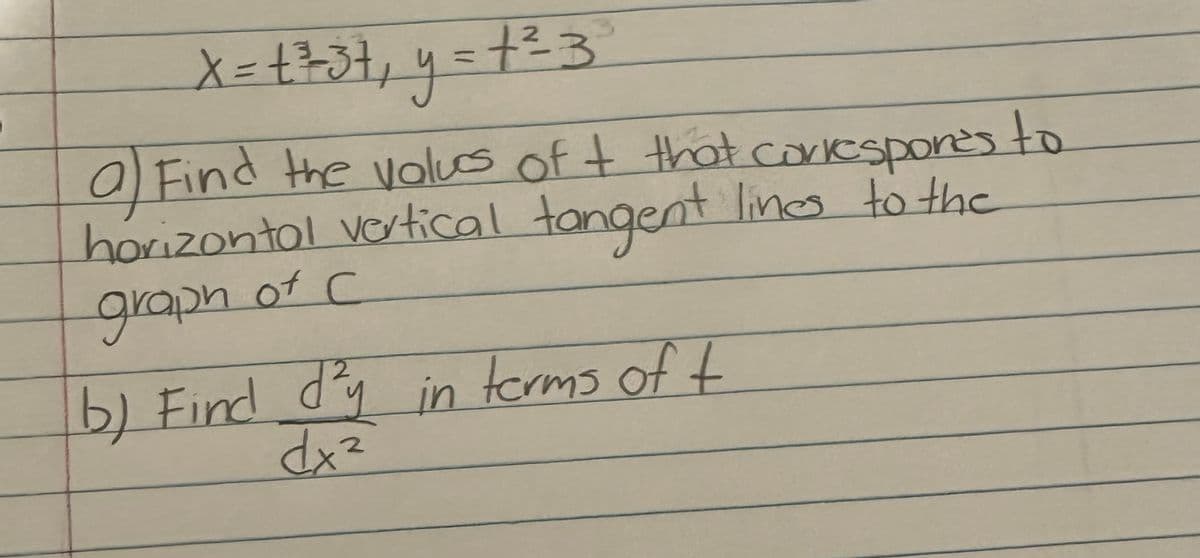 x = t³-3t, y = t²-3
a) Find the values of t that correspones to
horizontal vertical tangent lines to the
graph of C
b) Find d²y in terms of t
dx²